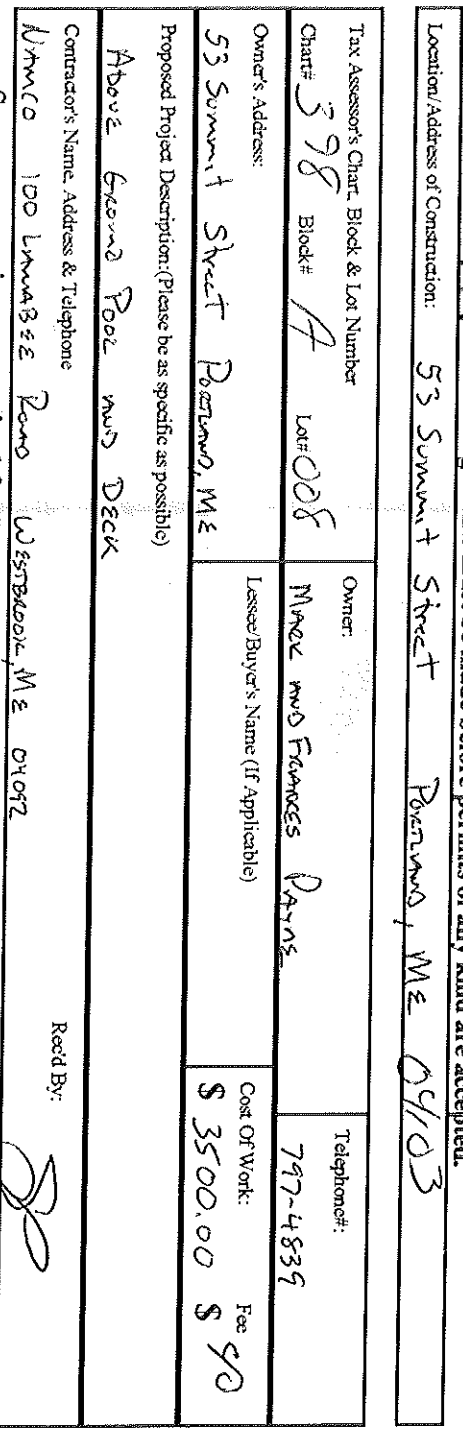 before permits of any kind are accepted.
Location/Address of Construction: 53 Summit Street Portland, ME 04103
Tax Assessor's Chart, Block & Lot Number
Chart# 398 Block# A Lot# 008
Owner:
Mark and Frances Payne
Telephone#:
797-4839
Owner's Address:
53 Summit Street Portland, ME
Lessee/Buyer's Name (If Applicable)
Cost Of Work:
$ 3500.00
Fee
$ 40
Proposed Project Description:(Please be as specific as possible)
Above Ground Pool and Deck
Contractor's Name, Address & Telephone
Namco 100 Larrabee Road Westbrook, ME 04092
Rec'd By: